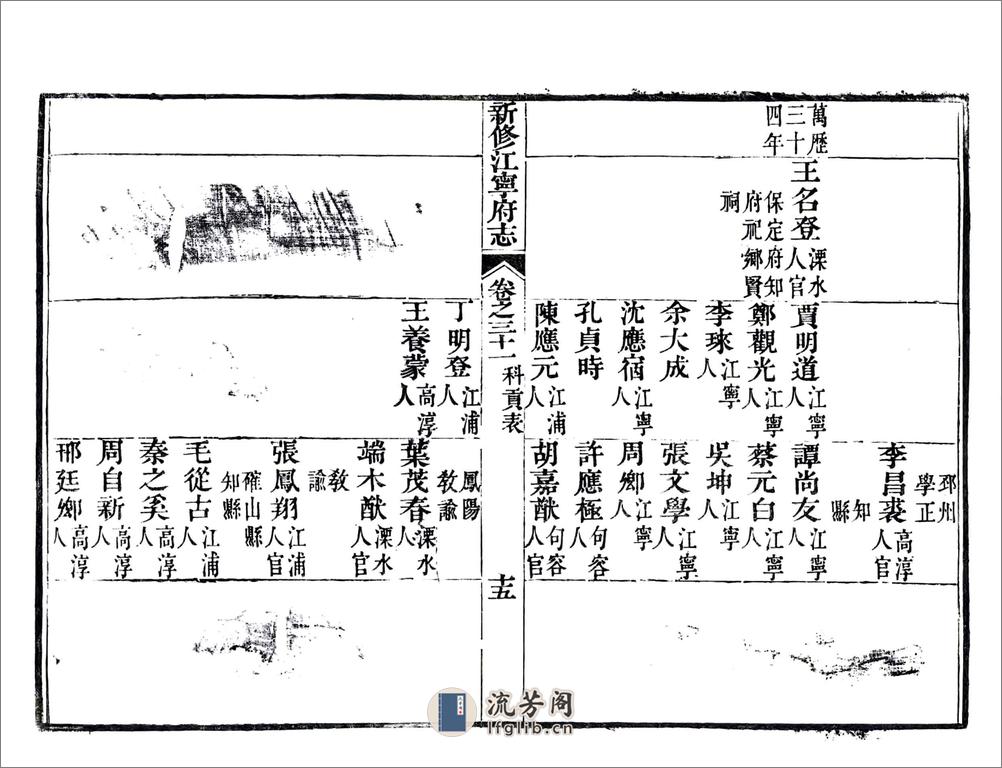 萬歷
三十
四年
王名登溧水
人官
保定府知
府祀鄉賢
祠
賈明道江寧
人
鄭觀光江寧
人
李琜江寧
人
余大成
沈應宿江寧
人
孔貞時
陳應元江浦
人
邳州
學正
李昌裘高淳
人官
知
縣
譚尚友江寧
人
蔡元白江寧
人
吳坤江寧
人
張文學江寧
人
周鄉江寧
人
許應極句容
人
胡嘉猷句容
人官
新修江寧府志
卷之三十一
科貢表
十五
丁明登江浦
人
王養蒙高淳
人
鳳陽
教諭
葉茂春溧水
人
端木猷溧水
人官
教
諭
張鳳翔江浦
人官
確山縣
知縣
毛從古江浦
人
秦之奚高淳
人
周自新高淳
人
邢廷鄉高淳
人
流芳阁
lfglib.cn